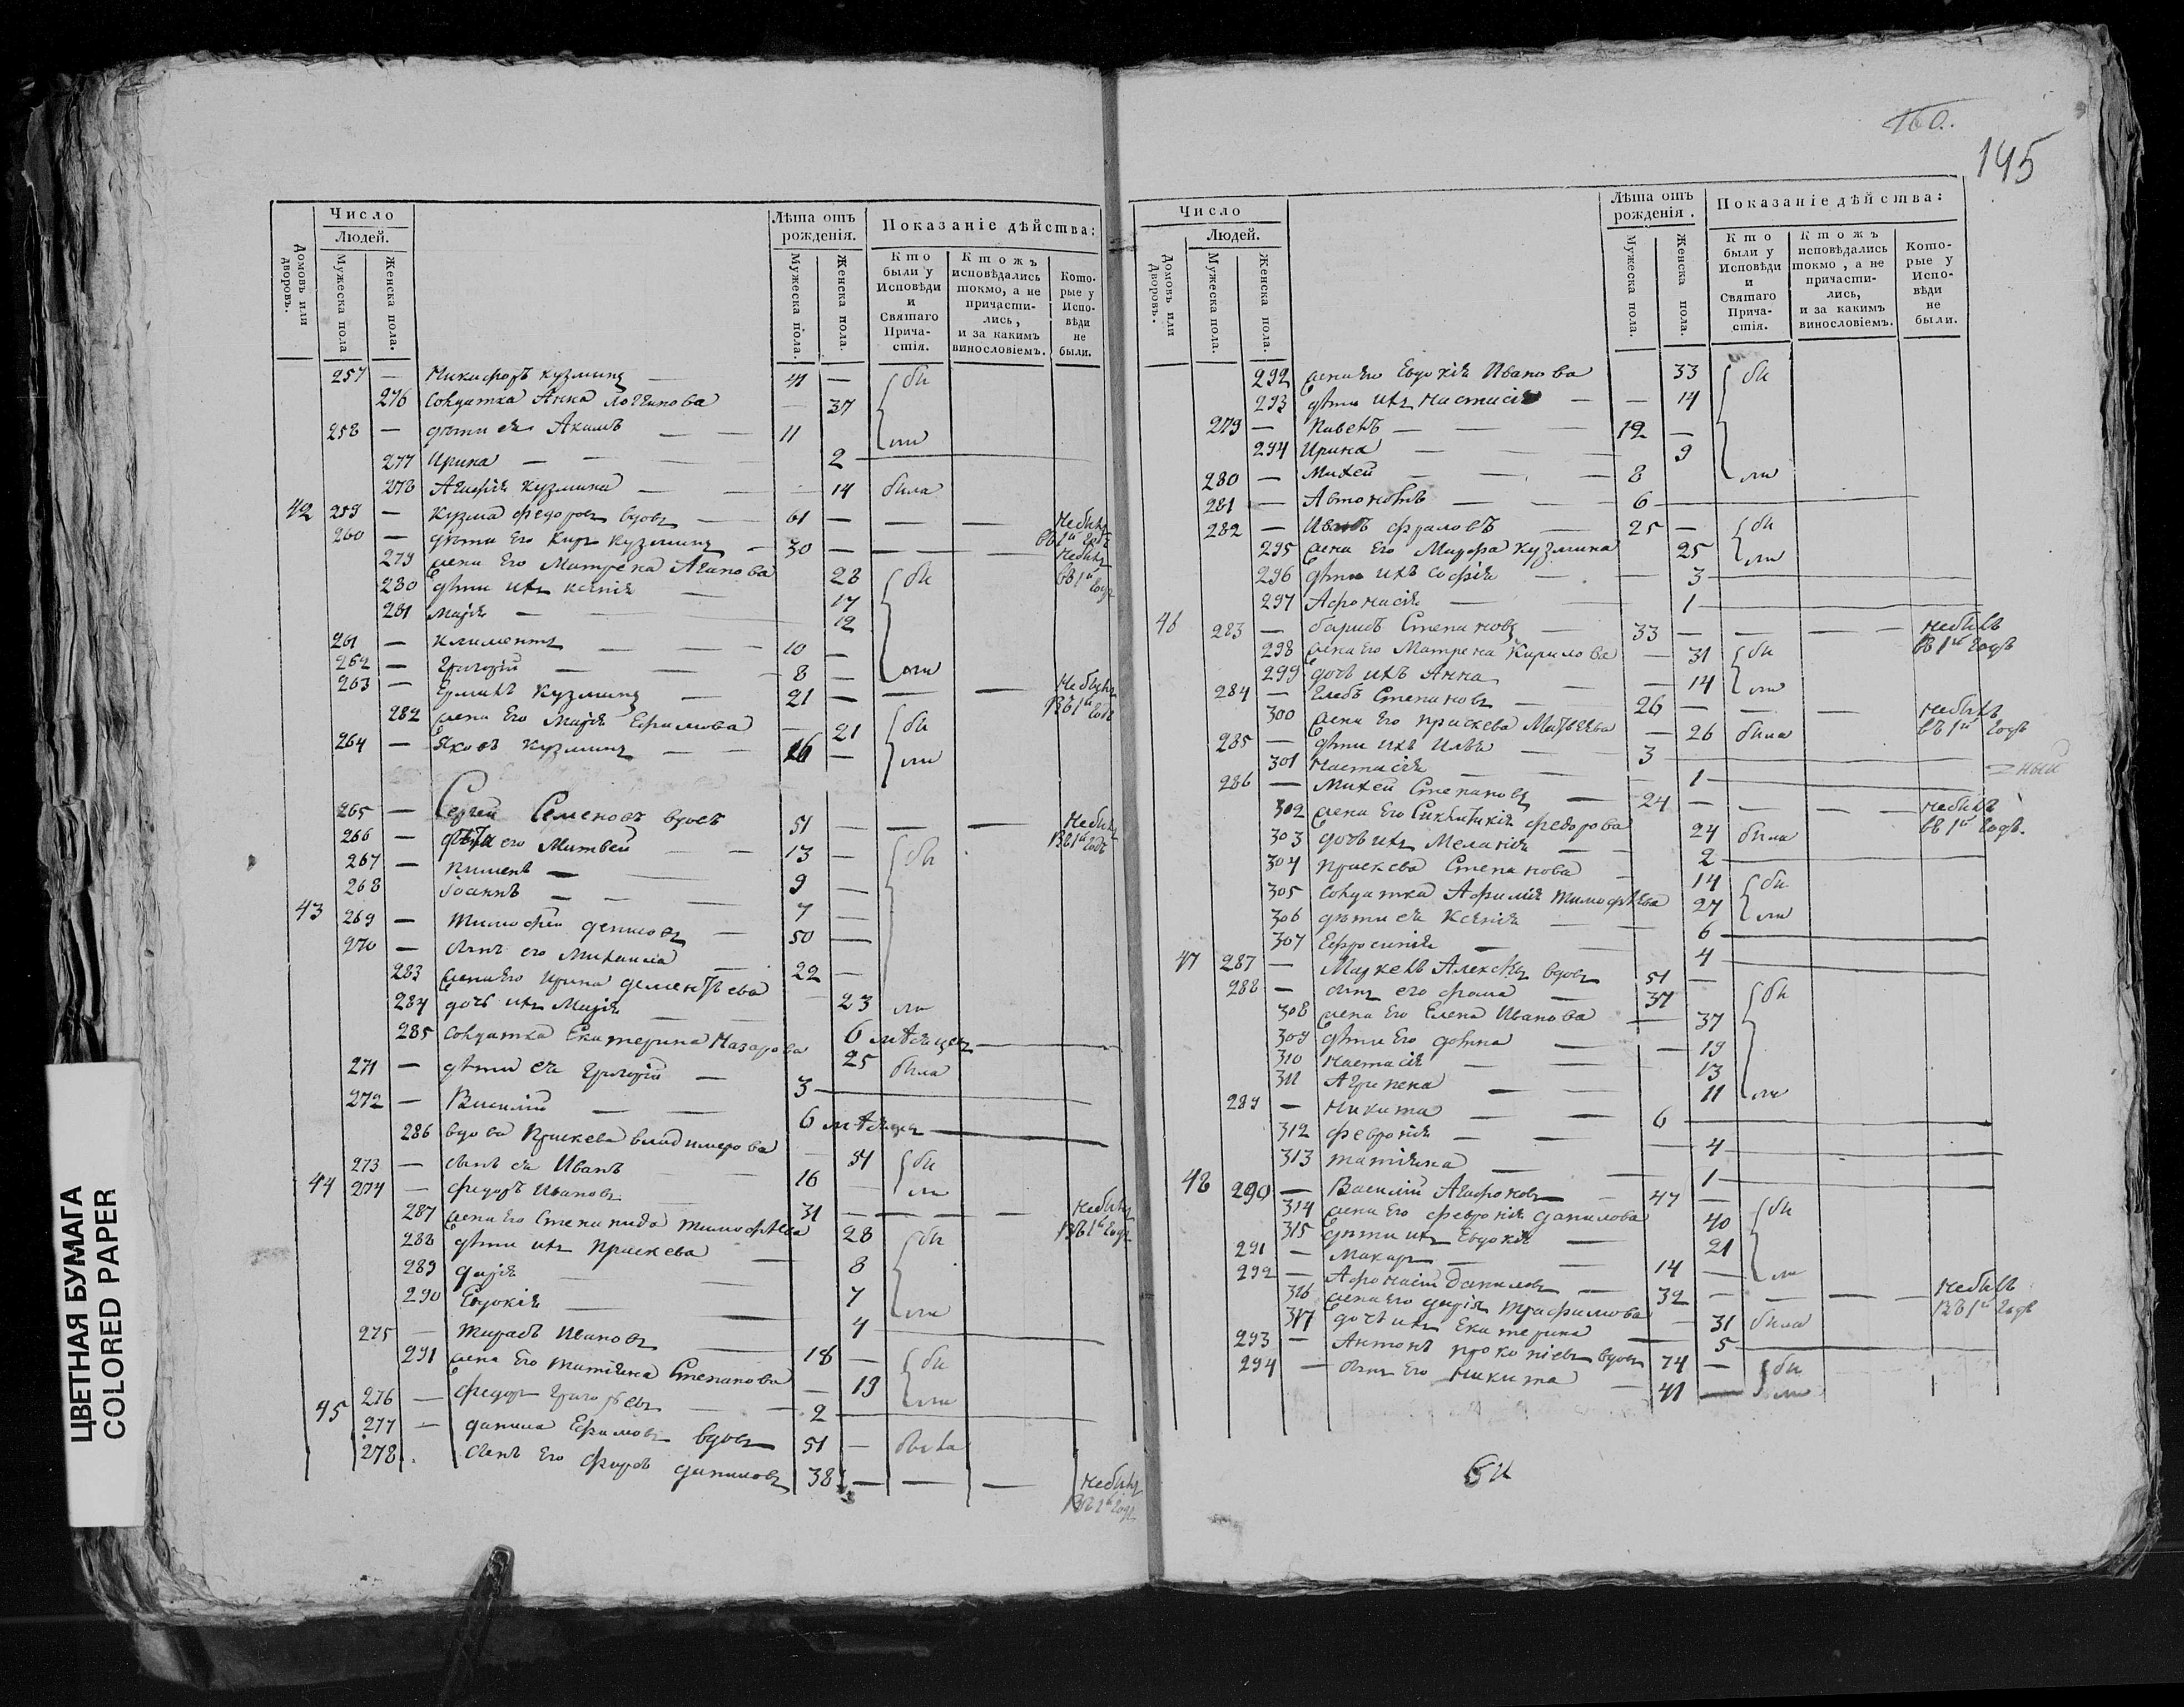 160.
145
Число
Людей.
Домовъ или дворовъ.
Мужеска пола
Женска пола.
Лѣта отъ рожденія.
Мужеска пола.
Женска пола.
Показаніе дѣйства:
Кто были у Исповѣди и Святаго Прича-стія.
Ктожъ исповѣдались токмо, а не причасти-лись, и за какимъ винословіемъ.
Кото-рые у Испо-вѣди не были.
257 — Никифоръ Кузминъ — 41 — бы
276 Солдатка Анна Логгинова — 37
258 — дѣти ея Акимъ — — 11 ли
277 Ирина — — 2 —
278 Агафія Кузмина — — 14 была
42 259 — Кузма Федоровъ вдовъ — 61 — — — Небылъ въ 1й годъ
260 — дѣти его Киръ Кузминъ — 30 — — — Небылъ въ 1й годъ
279 жена его Матрена Агапова 28 бы
280 дѣти ихъ Ксенія — 17
281 Марія — 12
261 — Климентъ — — 10 —
262 — Григорій — — 8 — ли
263 — Ермилъ Кузминъ — 21 — — — Небылъ въ 1й годъ
282 жена его Марія Ефимова — 21 бы
264 — Яковъ Кузминъ — — 16 — ли
265 — Сергей Семеновъ вдовъ 51 — — — Небылъ въ 1й годъ
266 — дѣти его Матвей — — 13 — бы
267 — Пименъ — — 9 —
268 Іоаннъ — — 7 —
43 269 — Тимофей Денисовъ — 50 —
270 — сынъ его Михаила — 22 —
283 жена его Ирина Дементьева — 23 ли
284 дочь ихъ Марія — — 6 мѣсяцевъ —
285 Солдатка Екатерина Назарова 25 была
271 — дѣти ея Григорій — 3 —
272 — Василій — — 6 мѣсяцевъ —
286 вдова Праскева Владимерова — 54 бы
273 — сынъ ея Иванъ — 16 — ли
44 274 — Федоръ Ивановъ — 31 — — — Небылъ въ 1й годъ
287 жена его Степанида Тимофѣева 28 бы
288 дѣти ихъ Праскева — 8
289 Дарія — — 7
290 Евдокія — — 4 ли
275 — Тарасъ Ивановъ — 18 — бы
291 жена его Татіяна Степанова — 19 ли
276 — Федоръ Григорьевъ — — 2 —
45 277 — Данила Ефимовъ вдовъ 51 —
278 . сынъ его Федоръ Даниловъ 38 — — — Небылъ въ 1й годъ
Число
Людей.
Домовъ или Дворовъ.
Мужеска пола.
Женска пола.
Лѣта отъ рожденія.
Мужеска пола.
Женска пола.
Показаніе дѣйства:
Кто были у Исповѣди и Святаго Прича-стія.
Ктожъ исповѣдались токмо, а не причасти-лись, и за какимъ винословіемъ.
Кото-рые у Испо-вѣди не были.
292 жена его Евдокія Иванова 33 бы
293 дѣти ихъ Настасія — — 14
279 — Павелъ — — 12 —
294 Ирина — — 9
280 — Михей — — 8 ли
281 — Автономъ — — 6 —
282 — Иванъ Фраловъ — 25 — бы
295 жена его Марфа Кузмина 25 ли
296 дѣти ихъ Софія — — 3 —
297 Афонасія — — 1 —
46 283 — Барисъ Степановъ — 33 — — — небылъ въ 1й годъ
298 жена его Матрена Кирилова — 31 бы
299 дочь ихъ Анна — — 14 ли
284 — Глебъ Степановъ — 26 — — — небылъ въ 1й годъ
300 жена его Праскева Матвѣева — 26 была
285 — дѣти ихъ Илья — 3 —
301 Настасія — — 1 —
286 — Михей Степановъ — 24 — — — небылъ въ 1й годъ.
302 жена его Сиклитикія Федорова 24 была
303 дочь ихъ Меланія — — 2 —
304 Праскева Степанова — 14 бы
305 Солдатка Афимія Тимофѣева 27 ли
306 дѣти ея Ксенія — 6 —
307 Ефросинія — — 4 —
47 287 — Маркелъ Алексѣевъ вдовъ 51 —
288 — сынъ его Фома — 37 бы
308 жена его Елена Иванова — 37
309 дѣти его Домна — — 19
310 Настасія — — 13
311 Агрипена — — 11 ли
289 — Никита — — 6 —
312 Февронія — — 4 —
313 Татіяна — — 1 —
48 290 — Василій Агафоновъ — 47 —
314 жена его Февронія Данилова 40 бы
315 дѣти ихъ Евдокія — 21
291 — Макаръ — — 14 — ли
292 — Афонасій Даниловъ — 32 — — — небылъ въ 1й годъ
316 жена его Дарія Трафимова — 31 была
317 дочь ихъ Екатерина — 5 —
293 — Антонъ Прокопіевъ вдовъ 74 — бы
294 — сынъ его Никита — 41 — ли